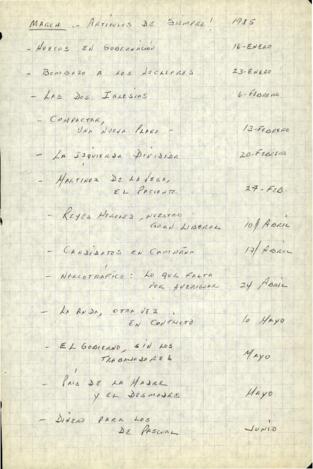 MARCA - ARTICULOS DE SIEMPRE! 1985
- HUECOS EN GOBERNACIÓN 16-ENERO
- BOMBAZO A LOS 23-ENERO
- LAS DOS IGLESIAS 6-FEBRERO
- COMPACTAR,
UNA NUEVA PLAZA - 13-FEBRERO
- LA IZQUIERDA DIVIDIDA 20-FEBRERO
- MARTINEZ DE LA VEGA,
EL PACIENTE 27-FEB.
- REYES HEROLES, NUESTRO
GRAN LIBERAL 10/ABRIL
- CANDIDATOS EN CAMPAÑA 17/ABRIL
- NARCOTRÁFICO: LO QUE FALTA
POR AVERIGUAR 24 ABRIL
- LA ANDA, OTRA VEZ
EN CONFLICTO 1o MAYO
- EL GOBIERNO, SIN LOS
TRABAJADORES MAYO
- PAÍS DE LA MADRE
Y EL DESMADRE MAYO
- DINERO PARA LOS
DE PASCUAL JUNIO